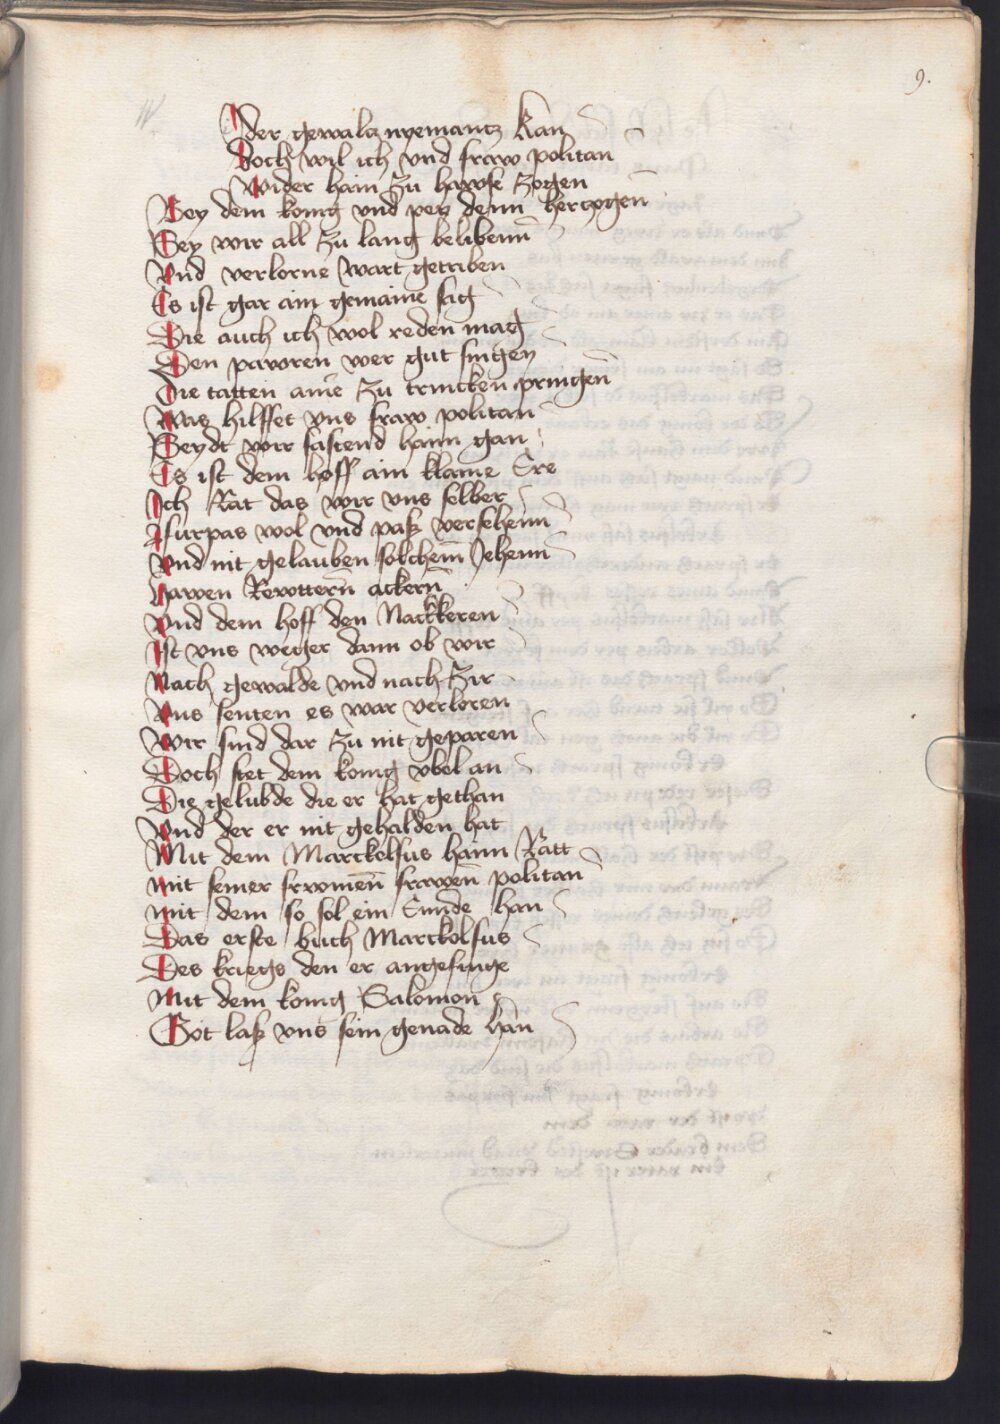 9.
Der gewaltz nyemantz kan
Doch wil ich vnd fraw politan
Wider haim zu hawse zogen
Bey dem konig vnd pey denn herczogenn
Sey wir all zu lang belibenn
Vnd verlorne wart getriben
Es ist gar ain gemaine sag
Die auch ich wol reden mag
Den pawren wer gut singen
Die tatten aine zu trincken pringen
Was hilffet vns fraw politan
Seydt wir fastend haim gan
Es ist dem hoff ain klaine Ere
Ich Rat das wir vns selber
Furpas wol vnd paß versehenn
Vnd nit gelauben solchenn Jehenn
Hawen Rewttern ackern
Vnd dem hoff den Nackkeren
Ist vns weger dann ob wir
Nach gewalde vnd nach Zir
Vns senten es war verloren
Wir sind dar zu nit geparen
Doch stet dem konig vbel an
Die gelubde die er hat gethan
Vnd der er nit gehalden hat
Mit dem Marckolfus haim Ratt
mit seiner frwmenn frawen politan
mit dem so sol ein Ennde han
Das erste buch Marckolfus
Des kriegs den er angefinge
Mit dem konig Salomon
Got laß vns sein genade han